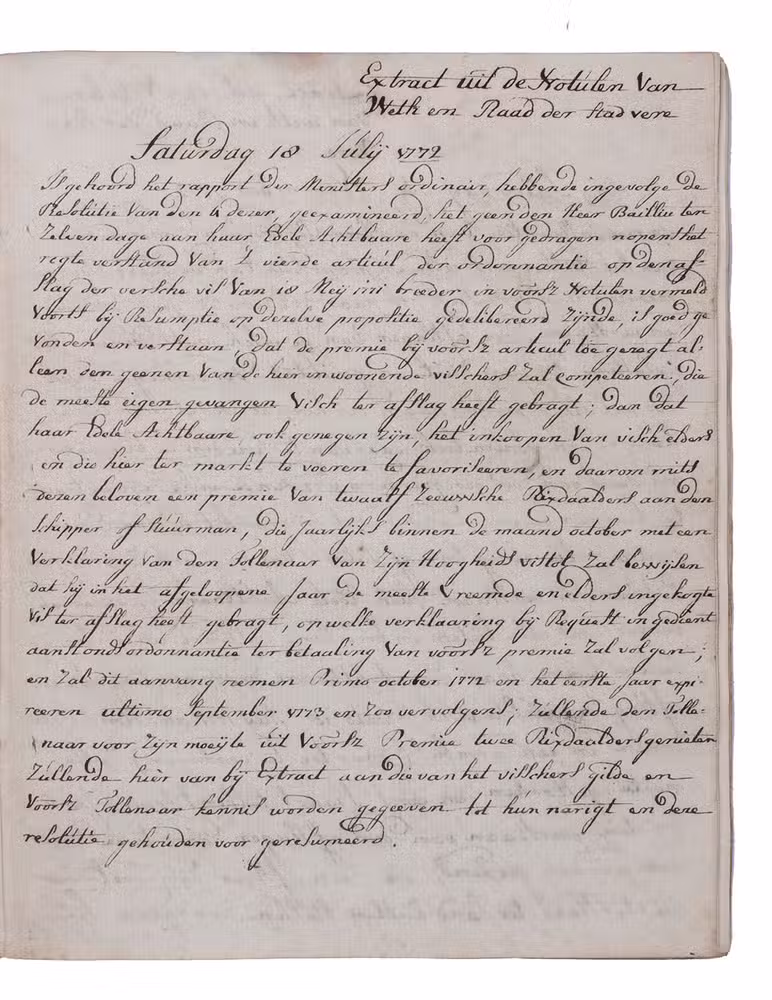 Extract uit de Notulen Van
Weth en Raad der stad vere
Saturdag 18 Julij 1772
Is gehoord het rapport der Ministers ordinair, hebbende ingevolge de
Resolutie Van den 4 dezer, geexamineerd, het geen den Heer Bailliu ten
Zelven dage aan haar Edele Achtbaare heeft voor gedragen nopent het
regte verstand Van 't vierde articul der ordonnantie op den af-
slag der versche vis Van 18 Meij 1721 breeder in voorsz Notulen vermeld
Voorts bij Resumptie op dezelve propositie gedelibereerd Zijnde, is goed ge
Vonden en verstaan, dat de premie bij voorsz articul toe gezegt al-
leen den geenen Van de hier inwoonende visschers Zal Competeeren, die
de meeste eigen gevangen Visch ter afslag heeft gebragt; dan dat
haar Edele Achtbaare, ook genegen zijn, het inkoopen Van visch elders
en die hier ter markt te voeren te favoriseeren, en daarom mits
dezen beloven een premie Van twaalf Zeeuwsche Rixdaalders aan den
Schipper of Stuurman, die Jaarlijks binnen de maand october met een
Verklaring van den Tollenaar Van Zijn Hoogheids vistol Zal bewijsen
dat hij in het afgeloopene Jaar de meeste Vreemde en elders ingekogte
Vis ter afslag heeft gebragt, op welke verklaaring bij Request in gedient
aanstonds ordonnantie ter betaaling Van voorsz premie Zal volgen;
en Zal dit aanvang nemen Primo october 1772 en het eerste Jaar expi-
reeren ultimo September 1773 en Zoo vervolgens; Zullende den Tolle-
naar voor Zijn moeijte uit Voorsz Premie twee Rixdaalders genieten
Zullende hier van bij Extract aan die van het visschers Gilde en
Voorsz Tollenaar kennis worden gegeeven tot hun narigt en deze
resolutie gehouden voor geresumeerd.